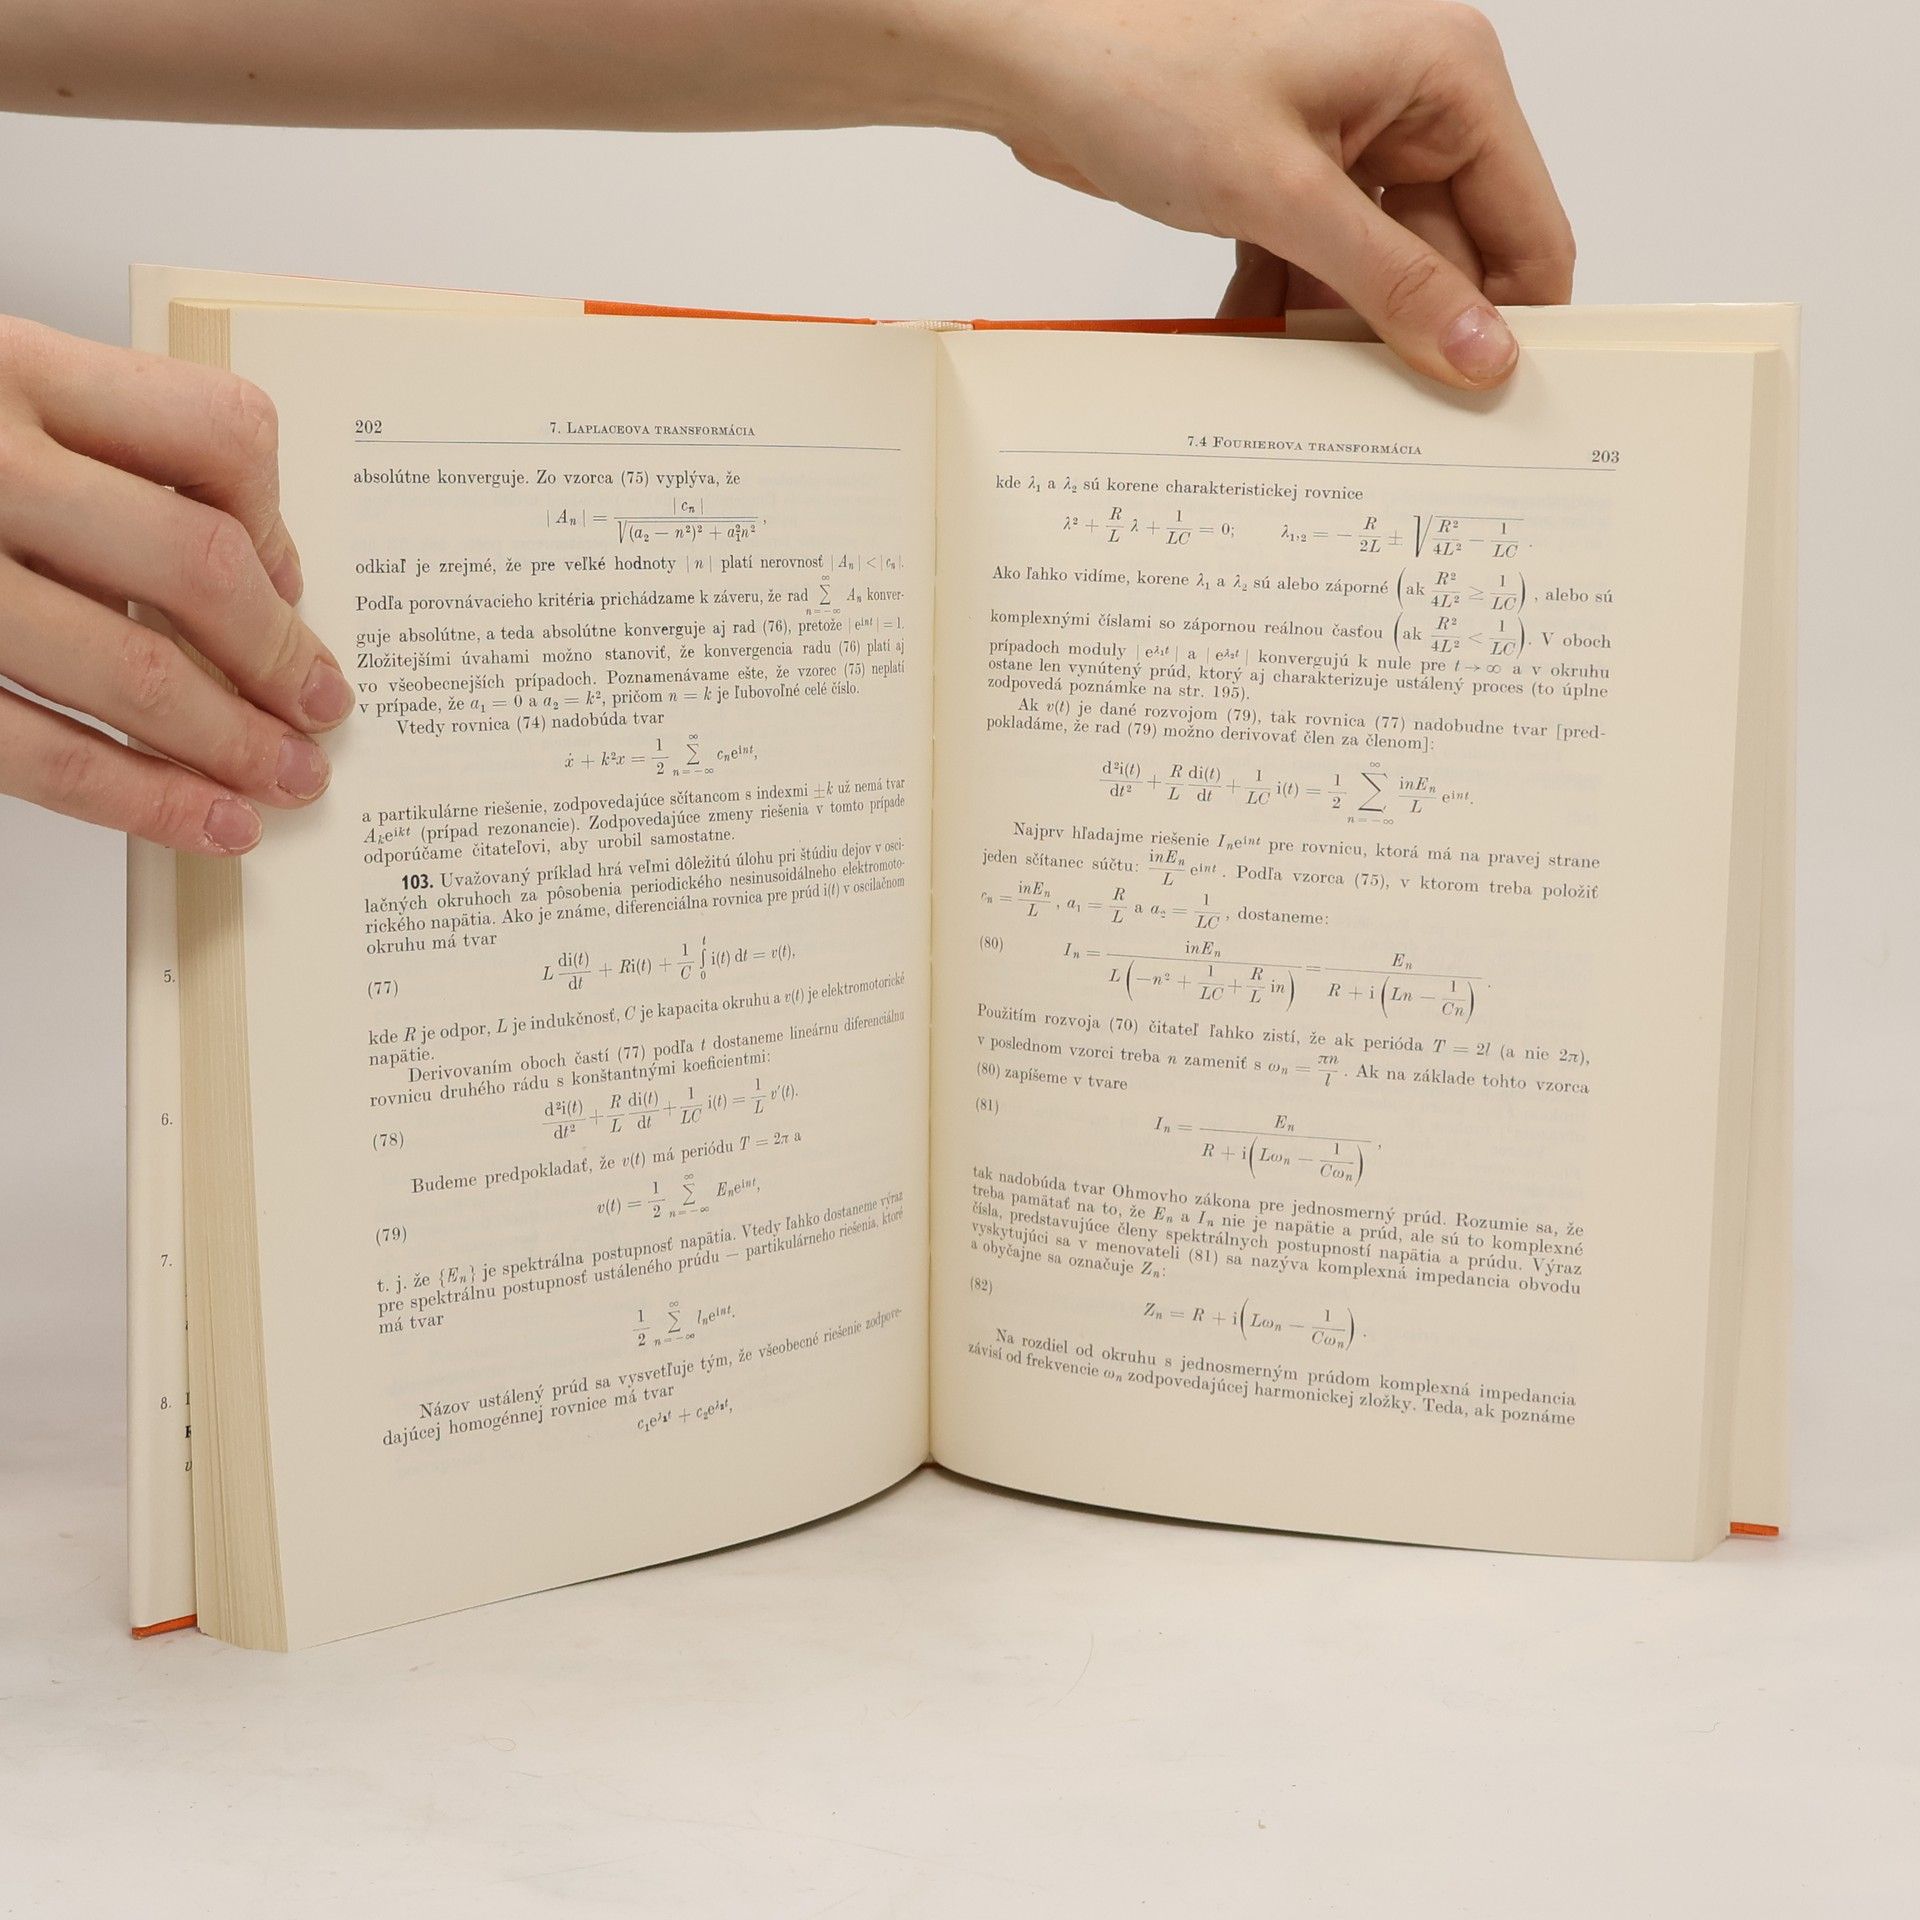 202
7. LAPLACEOVA TRANSFORMÁCIA
absolútne konverguje. Zo vzorca (75) vyplýva, že
| Aₙ | = | cₙ | / √((a₂ − n²)² + a₁²n²) ,
odkiaľ je zrejmé, že pre veľké hodnoty | n | platí nerovnosť | Aₙ | < | cₙ |.
Podľa porovnávacieho kritéria prichádzame k záveru, že rad ∑_{n=−∞}^{∞} Aₙ konver-
guje absolútne, a teda absolútne konverguje aj rad (76), pretože | e^{int} | = 1.
Zložitejšími úvahami možno stanoviť, že konvergencia radu (76) platí aj
vo všeobecnejších prípadoch. Poznamenávame ešte, že vzorec (75) neplatí
v prípade, že a₁ = 0 a a₂ = k², pričom n = k je ľubovoľné celé číslo.
Vtedy rovnica (74) nadobúda tvar
ẋ + k²x = 1/2 ∑_{n=−∞}^{∞} cₙe^{int},
a partikulárne riešenie, zodpovedajúce sčítancom s indexmi ±k už nemá tvar
Aₖe^{ikt} (prípad rezonancie). Zodpovedajúce zmeny riešenia v tomto prípade
odporúčame čitateľovi, aby urobil samostatne.
103. Uvažovaný príklad hrá veľmi dôležitú úlohu pri štúdiu dejov v osci-
lačných okruhoch za pôsobenia periodického nesinusoidálneho elektromoto-
rického napätia. Ako je známe, diferenciálna rovnica pre prúd i(t) v oscilačnom
okruhu má tvar
(77) L di(t)/dt + Ri(t) + 1/C ∫₀ᵗ i(t) dt = v(t),
kde R je odpor, L je indukčnosť, C je kapacita okruhu a v(t) je elektromotorické
napätie.
Derivovaním oboch častí (77) podľa t dostaneme lineárnu diferenciálnu
rovnicu druhého rádu s konštantnými koeficientmi:
(78) d²i(t)/dt² + R/L di(t)/dt + 1/LC i(t) = 1/L v′(t).
Budeme predpokladať, že v(t) má periódu T = 2π a
(79) v(t) = 1/2 ∑_{n=−∞}^{∞} Eₙe^{int},
t. j. že {Eₙ} je spektrálna postupnosť napätia. Vtedy ľahko dostaneme výraz
pre spektrálnu postupnosť ustáleného prúdu — partikulárneho riešenia, ktoré
má tvar
1/2 ∑_{n=−∞}^{∞} Iₙe^{int}.
Názov ustálený prúd sa vysvetľuje tým, že všeobecné riešenie zodpove-
dajúcej homogénnej rovnice má tvar
c₁e^{λ₁t} + c₂e^{λ₂t},
5.
6.
7.
8.
7.4 FOURIEROVA TRANSFORMÁCIA
203
kde λ₁ a λ₂ sú korene charakteristickej rovnice
λ² + R/L λ + 1/LC = 0; λ₁,₂ = − R/2L ± √(R²/4L² − 1/LC) .
Ako ľahko vidíme, korene λ₁ a λ₂ sú alebo záporné (ak R²/4L² ≥ 1/LC) , alebo sú
komplexnými číslami so zápornou reálnou časťou (ak R²/4L² < 1/LC). V oboch
prípadoch moduly | e^{λ₁t} | a | e^{λ₂t} | konvergujú k nule pre t → ∞ a v okruhu
ostane len vynútený prúd, ktorý aj charakterizuje ustálený proces (to úplne
zodpovedá poznámke na str. 195).
Ak v(t) je dané rozvojom (79), tak rovnica (77) nadobudne tvar [pred-
pokladáme, že rad (79) možno derivovať člen za členom]:
d²i(t)/dt² + R/L di(t)/dt + 1/LC i(t) = 1/2 ∑_{n=−∞}^{∞} inEₙ/L e^{int}.
Najprv hľadajme riešenie Iₙe^{int} pre rovnicu, ktorá má na pravej strane
jeden sčítanec súčtu: inEₙ/L e^{int} . Podľa vzorca (75), v ktorom treba položiť
cₙ = inEₙ/L , a₁ = R/L a a₂ = 1/LC , dostaneme:
(80) Iₙ = inEₙ / L(−n² + 1/LC + R/L in) = Eₙ / R + i(Ln − 1/Cn) .
Použitím rozvoja (70) čitateľ ľahko zistí, že ak perióda T = 2l (a nie 2π),
v poslednom vzorci treba n zameniť s ωₙ = πn/l . Ak na základe tohto vzorca
(80) zapíšeme v tvare
(81) Iₙ = Eₙ / R + i(Lωₙ − 1/Cωₙ) ,
tak nadobúda tvar Ohmovho zákona pre jednosmerný prúd. Rozumie sa, že
treba pamätať na to, že Eₙ a Iₙ nie je napätie a prúd, ale sú to komplexné
čísla, predstavujúce členy spektrálnych postupností napätia a prúdu. Výraz
vyskytujúci sa v menovateli (81) sa nazýva komplexná impedancia obvodu
a obyčajne sa označuje Zₙ:
(82) Zₙ = R + i(Lωₙ − 1/Cωₙ) .
Na rozdiel od okruhu s jednosmerným prúdom komplexná impedancia
závisí od frekvencie ωₙ zodpovedajúcej harmonickej zložky. Teda, ak poznáme